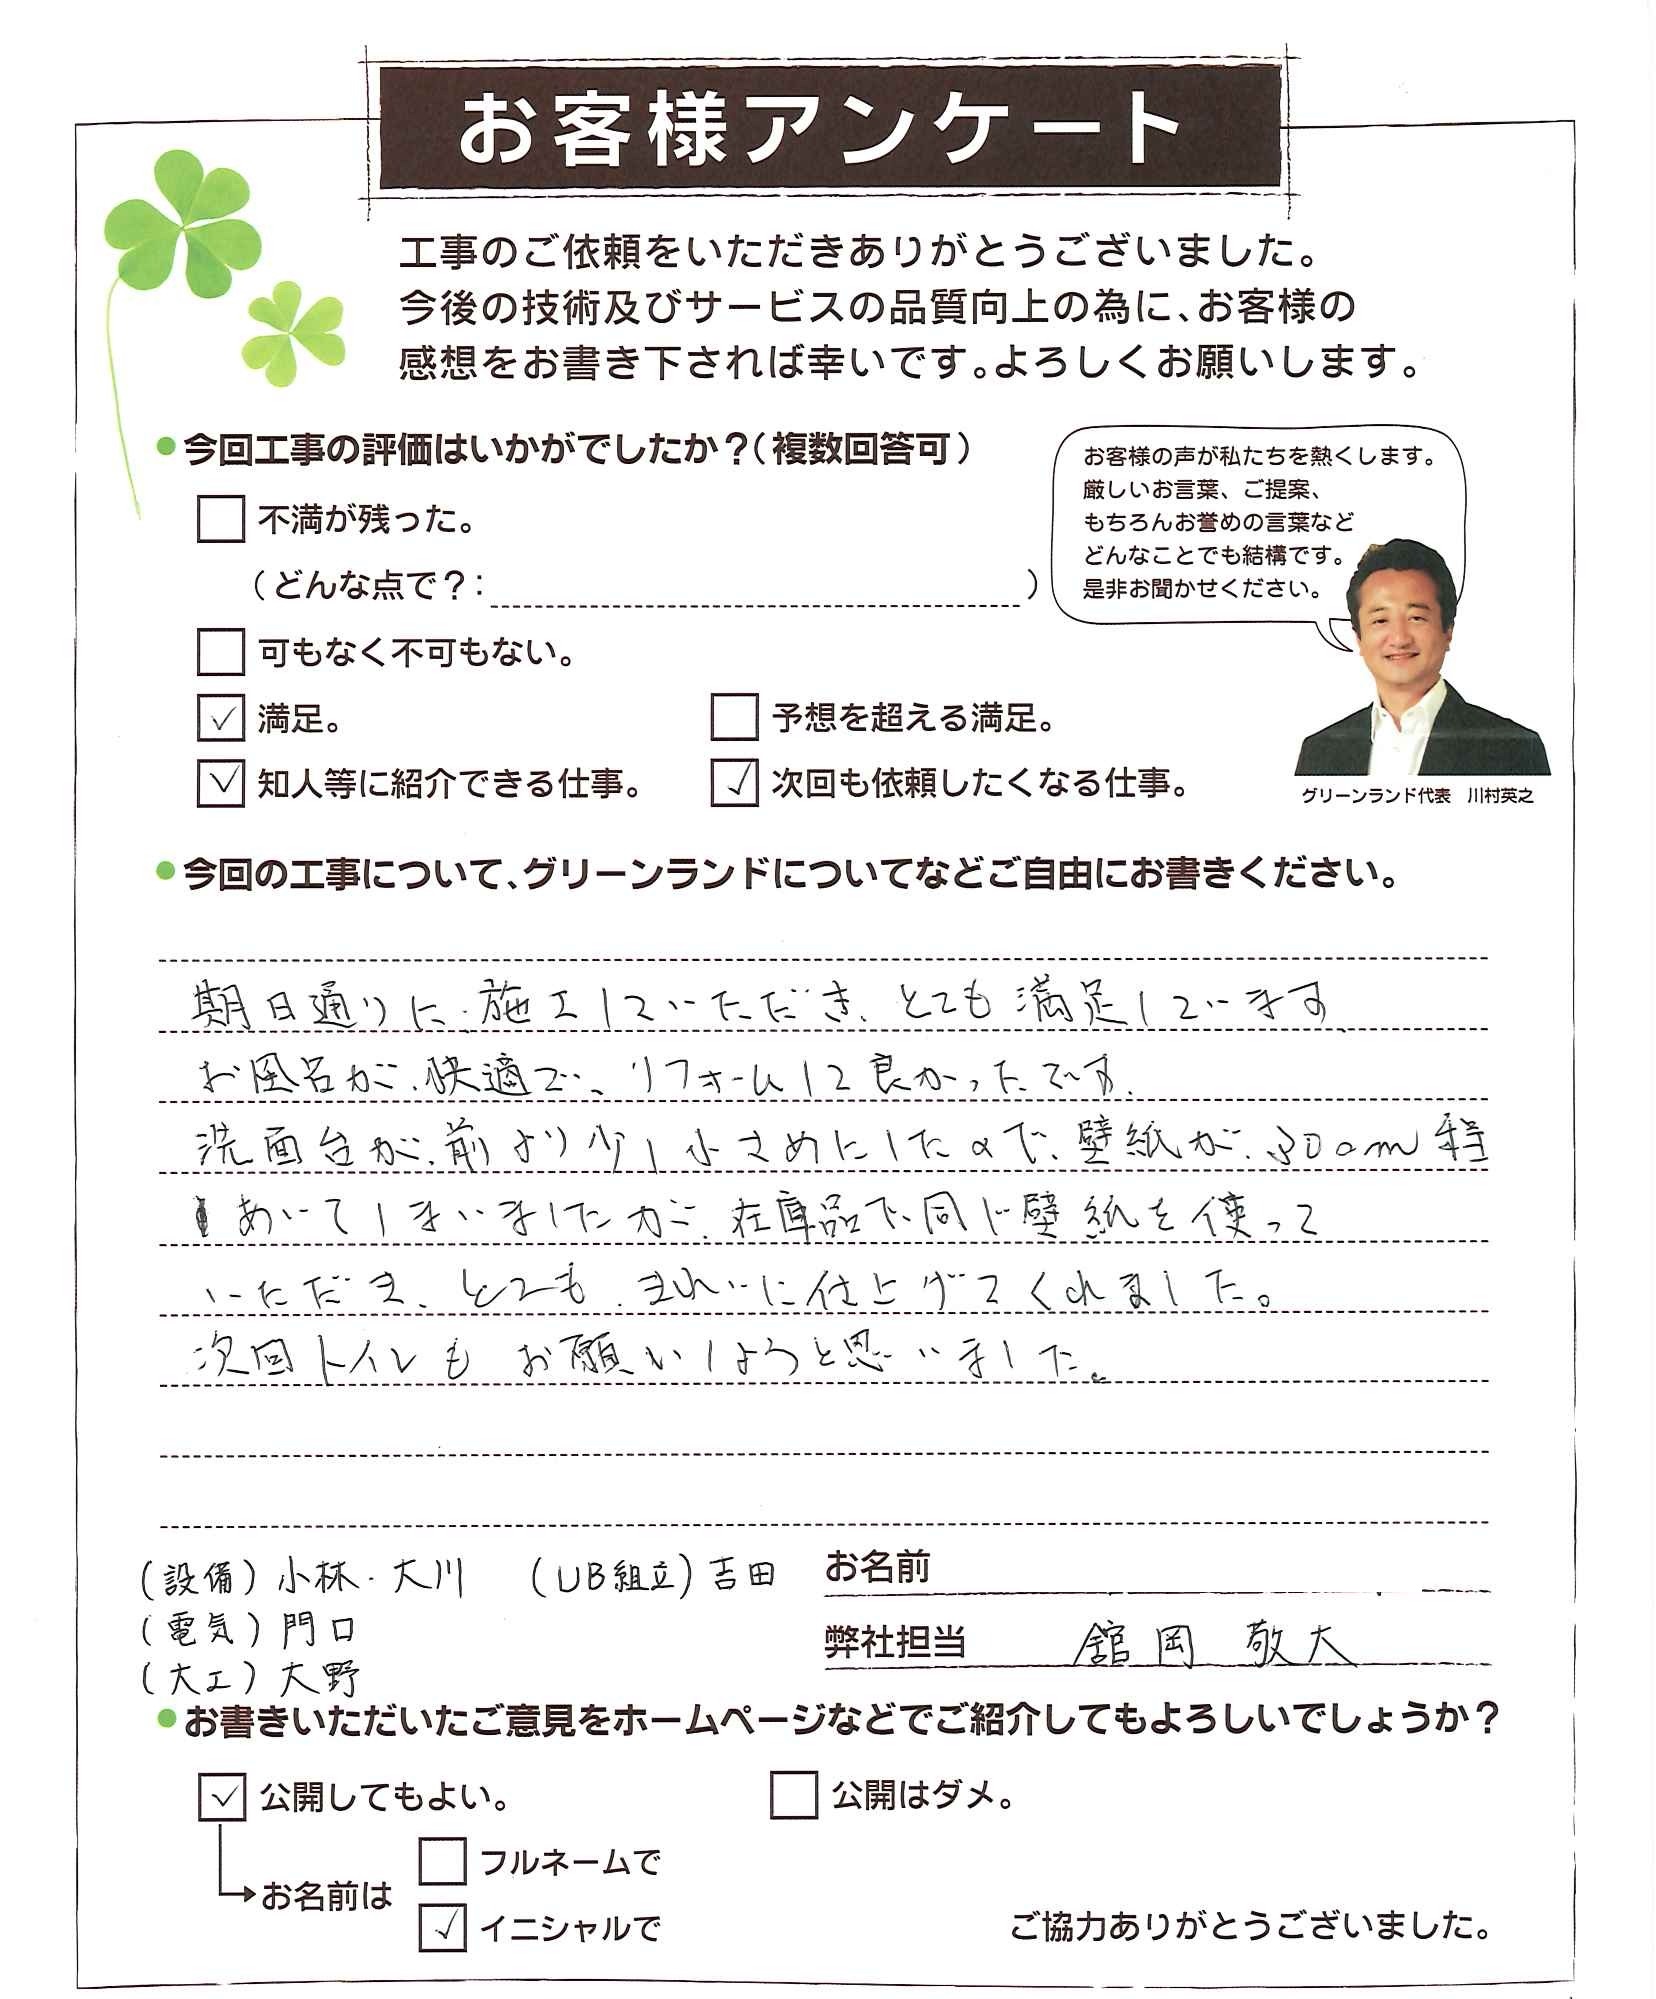 お客様アンケート
工事のご依頼をいただきありがとうございました。
今後の技術及びサービスの品質向上の為に、お客様の
感想をお書き下されば幸いです。よろしくお願いします。
●今回工事の評価はいかがでしたか?(複数回答可)
不満が残った。
(どんな点で?: )
可もなく不可もない。
✓ 満足。
予想を超える満足。
✓ 知人等に紹介できる仕事。
✓ 次回も依頼したくなる仕事。
お客様の声が私たちを熱くします。
厳しいお言葉、ご提案、
もちろんお誉めの言葉など
どんなことでも結構です。
是非お聞かせください。
グリーンランド代表 川村英之
●今回の工事について、グリーンランドについてなどご自由にお書きください。
期日通りに、施工していただき、とても満足しています、
お風呂が、快適で、リフォームして良かったです、
洗面台が、前より少し小さめにしたので、壁紙が、30cm程
あいてしまいましたが、在庫品で、同じ壁紙を使って
いただき、とても、きれいに仕上げてくれました。
次回トイレも お願いしようと思いました。
(設備) 小林・大川 (UB組立) 吉田
(電気) 門口
(大工) 大野
お名前
弊社担当 舘岡 敬大
●お書きいただいたご意見をホームページなどでご紹介してもよろしいでしょうか?
✓ 公開してもよい。
公開はダメ。
お名前は
フルネームで
✓ イニシャルで
ご協力ありがとうございました。